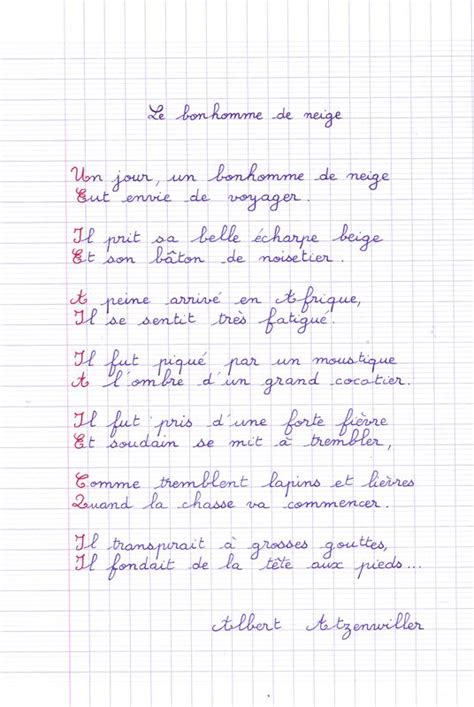 Le bonhomme de neige
Un jour, un bonhomme de neige
Eut envie de voyager.
Il prit sa belle écharpe beige
Et son bâton de noisetier.
A peine arrivé en Afrique,
Il se sentit très fatigué.
Il fut piqué par un moustique
A l'ombre d'un grand cocotier.
Il fut pris d'une forte fièvre
Et soudain se mit à trembler,
Comme tremblent lapins et lièvres
Quand la chasse va commencer.
Il transpirait à grosses gouttes,
Il fondait de la tête aux pieds...
Albert Atzenwiller